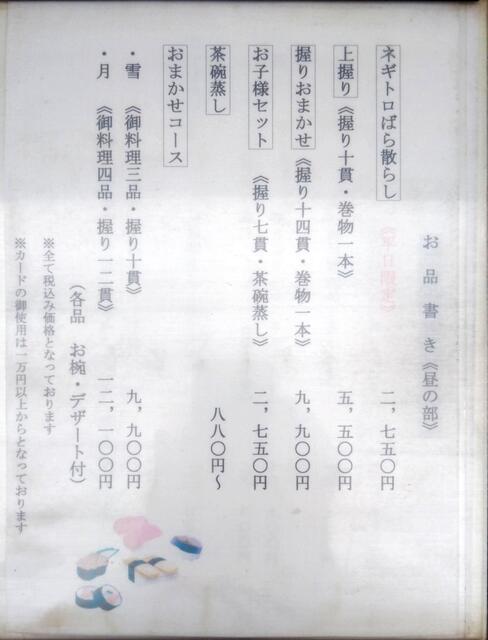 お品書き《昼の部》
ネギトロばら散らし《平日限定》 二，七五〇円
上握り《握り十貫・巻物一本》 五，五〇〇円
握りおまかせ《握り十四貫・巻物一本》 九，九〇〇円
お子様セット《握り七貫・茶碗蒸し》 二，七五〇円
茶碗蒸し 八八〇円～
おまかせコース
・雪《御料理三品・握り十貫》 九，九〇〇円
・月《御料理四品・握り一二貫》 一二，一〇〇円
（各品 お椀・デザート付）
※全て税込み価格となっております
※カードの御使用は一万円以上からとなっております